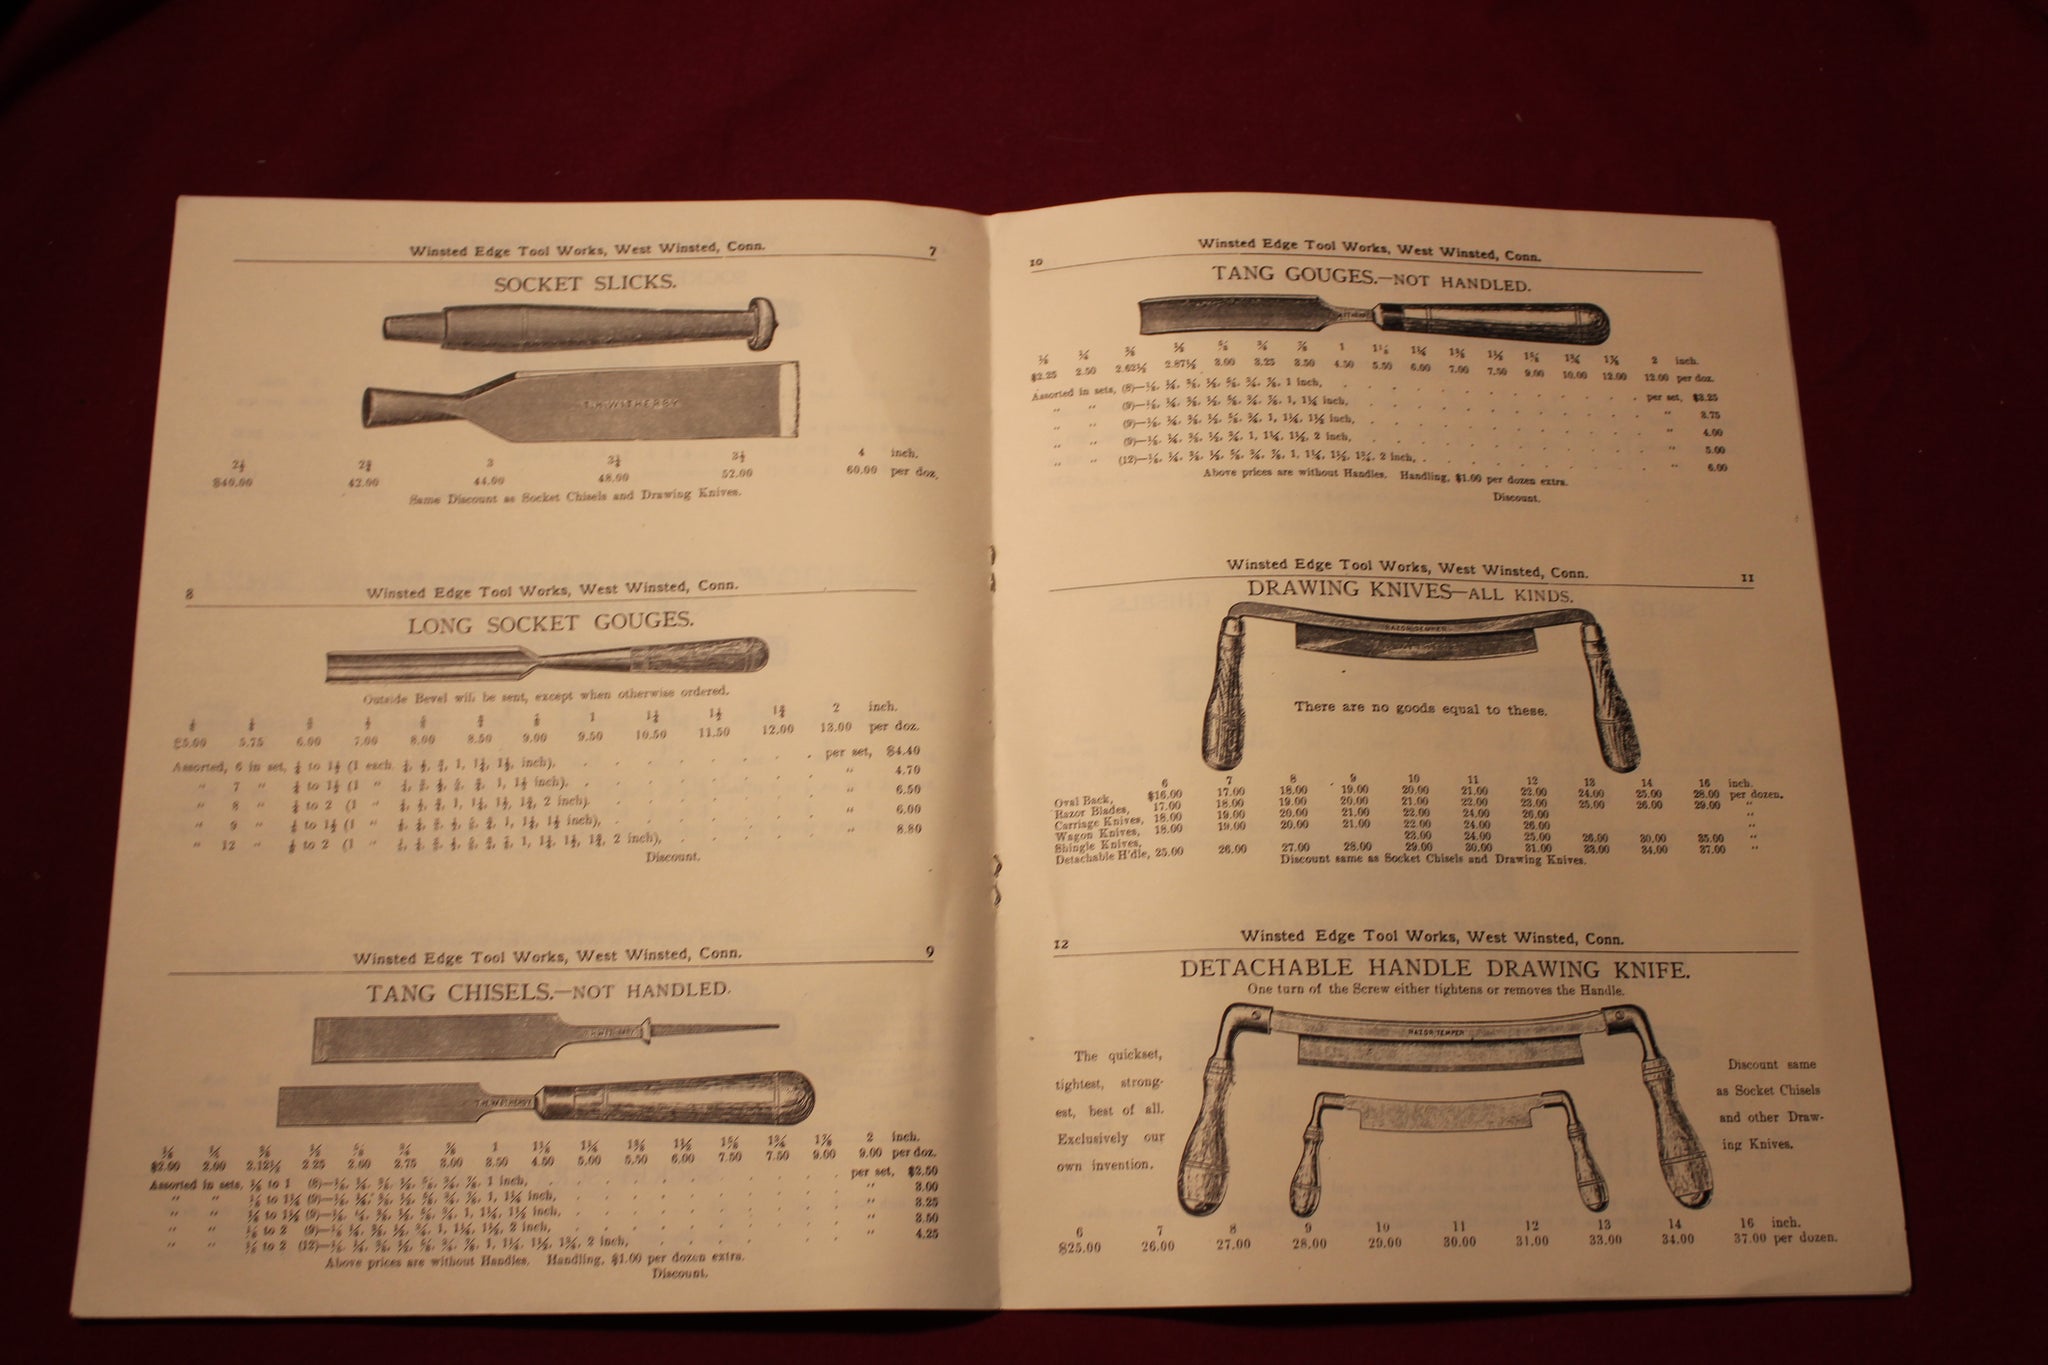 Winsted Edge Tool Works, West Winsted, Conn. 7
SOCKET SLICKS.
T.H. WITHERBY
2½ 2¾ 3 3¼ 3½ 4 inch.
$40.00 42.00 44.00 48.00 52.00 60.00 per doz.
Same Discount as Socket Chisels and Drawing Knives.
8 Winsted Edge Tool Works, West Winsted, Conn.
LONG SOCKET GOUGES.
Outside Bevel will be sent, except when otherwise ordered.
1 1¼ 1½ 1¾ 2 inch.
$5.00 5.75 6.00 7.00 8.00 8.50 9.00 9.50 10.50 11.50 12.00 13.00 per doz.
Assorted, 6 in set, to 1½ (1 each 1, 1¼, 1½ inch), per set, $4.40
" 7 " to 1½ (1 " 1, 1½ inch), " 4.70
" 8 " to 2 (1 " 1, 1¼, 1½, 1¾, 2 inch). " 6.50
" 9 " to 1½ (1 " 1, 1¼, 1½ inch), " 6.00
" 12 " to 2 (1 " 1, 1¼, 1½, 1¾, 2 inch), " 8.80
Discount.
Winsted Edge Tool Works, West Winsted, Conn. 9
TANG CHISELS.—NOT HANDLED.
T.H. WITHERBY
T.H. WITHERBY
⅛ ¼ ⅜ ½ ⅝ ¾ ⅞ 1 1⅛ 1¼ 1⅜ 1½ 1⅝ 1¾ 1⅞ 2 inch.
$2.00 2.00 2.12½ 2.25 2.60 2.75 3.00 3.50 4.50 5.00 5.50 6.00 7.50 7.50 9.00 9.00 per doz.
Assorted in sets, ⅛ to 1 (8)—⅛, ¼, ⅜, ½, ⅝, ¾, ⅞, 1 inch, per set, $2.50
" " ⅛ to 1¼ (9)—⅛, ¼, ⅜, ½, ⅝, ¾, ⅞, 1, 1¼ inch, " 3.00
" " ⅛ to 1½ (9)—⅛, ¼, ⅜, ½, ⅝, ¾, 1, 1¼, 1½ inch, " 3.25
" " ⅛ to 2 (9)—⅛, ¼, ⅜, ½, ¾, 1, 1¼, 1½, 2 inch, " 3.50
" " ⅛ to 2 (12)—⅛, ¼, ⅜, ½, ⅝, ¾, ⅞, 1, 1¼, 1½, 1¾, 2 inch, " 4.25
Above prices are without Handles. Handling, $1.00 per dozen extra.
Discount.
10 Winsted Edge Tool Works, West Winsted, Conn.
TANG GOUGES.—NOT HANDLED.
⅛ ¼ ⅜ ½ ⅝ ¾ ⅞ 1 1⅛ 1¼ 1⅜ 1½ 1⅝ 1¾ 1⅞ 2 inch.
$2.25 2.50 2.62½ 2.87½ 3.00 3.25 3.50 4.50 5.50 6.00 7.00 7.50 9.00 10.00 12.00 12.00 per doz.
Assorted in sets, (8)—⅛, ¼, ⅜, ½, ⅝, ¾, ⅞, 1 inch, per set, $3.25
" " (9)—⅛, ¼, ⅜, ½, ⅝, ¾, ⅞, 1, 1¼ inch, " 3.75
" " (9)—⅛, ¼, ⅜, ½, ⅝, ¾, 1, 1¼, 1½ inch, " 4.00
" " (9)—⅛, ¼, ⅜, ½, ¾, 1, 1¼, 1½, 2 inch, " 5.00
" " (12)—⅛, ¼, ⅜, ½, ⅝, ¾, ⅞, 1, 1¼, 1½, 1¾, 2 inch, " 6.00
Above prices are without Handles. Handling, $1.00 per dozen extra.
Discount.
Winsted Edge Tool Works, West Winsted, Conn. 11
DRAWING KNIVES—ALL KINDS.
RAZOR TEMPER
There are no goods equal to these.
6 7 8 9 10 11 12 13 14 16 inch.
Oval Back, $16.00 17.00 18.00 19.00 20.00 21.00 22.00 24.00 25.00 28.00 per dozen.
Razor Blades, 17.00 18.00 19.00 20.00 21.00 22.00 23.00 25.00 26.00 29.00 "
Carriage Knives, 18.00 19.00 20.00 21.00 22.00 24.00 26.00 "
Wagon Knives, 18.00 19.00 20.00 21.00 22.00 24.00 26.00 "
Shingle Knives, 23.00 24.00 25.00 26.00 30.00 35.00 "
Detachable H'dle, 25.00 26.00 27.00 28.00 29.00 30.00 31.00 33.00 34.00 37.00 "
Discount same as Socket Chisels and Drawing Knives.
12 Winsted Edge Tool Works, West Winsted, Conn.
DETACHABLE HANDLE DRAWING KNIFE.
One turn of the Screw either tightens or removes the Handle.
RAZOR TEMPER
The quickset,
tightest, strong-
est, best of all.
Exclusively our
own invention.
Discount same
as Socket Chisels
and other Draw-
ing Knives.
6 7 8 9 10 11 12 13 14 16 inch.
$25.00 26.00 27.00 28.00 29.00 30.00 31.00 33.00 34.00 37.00 per dozen.